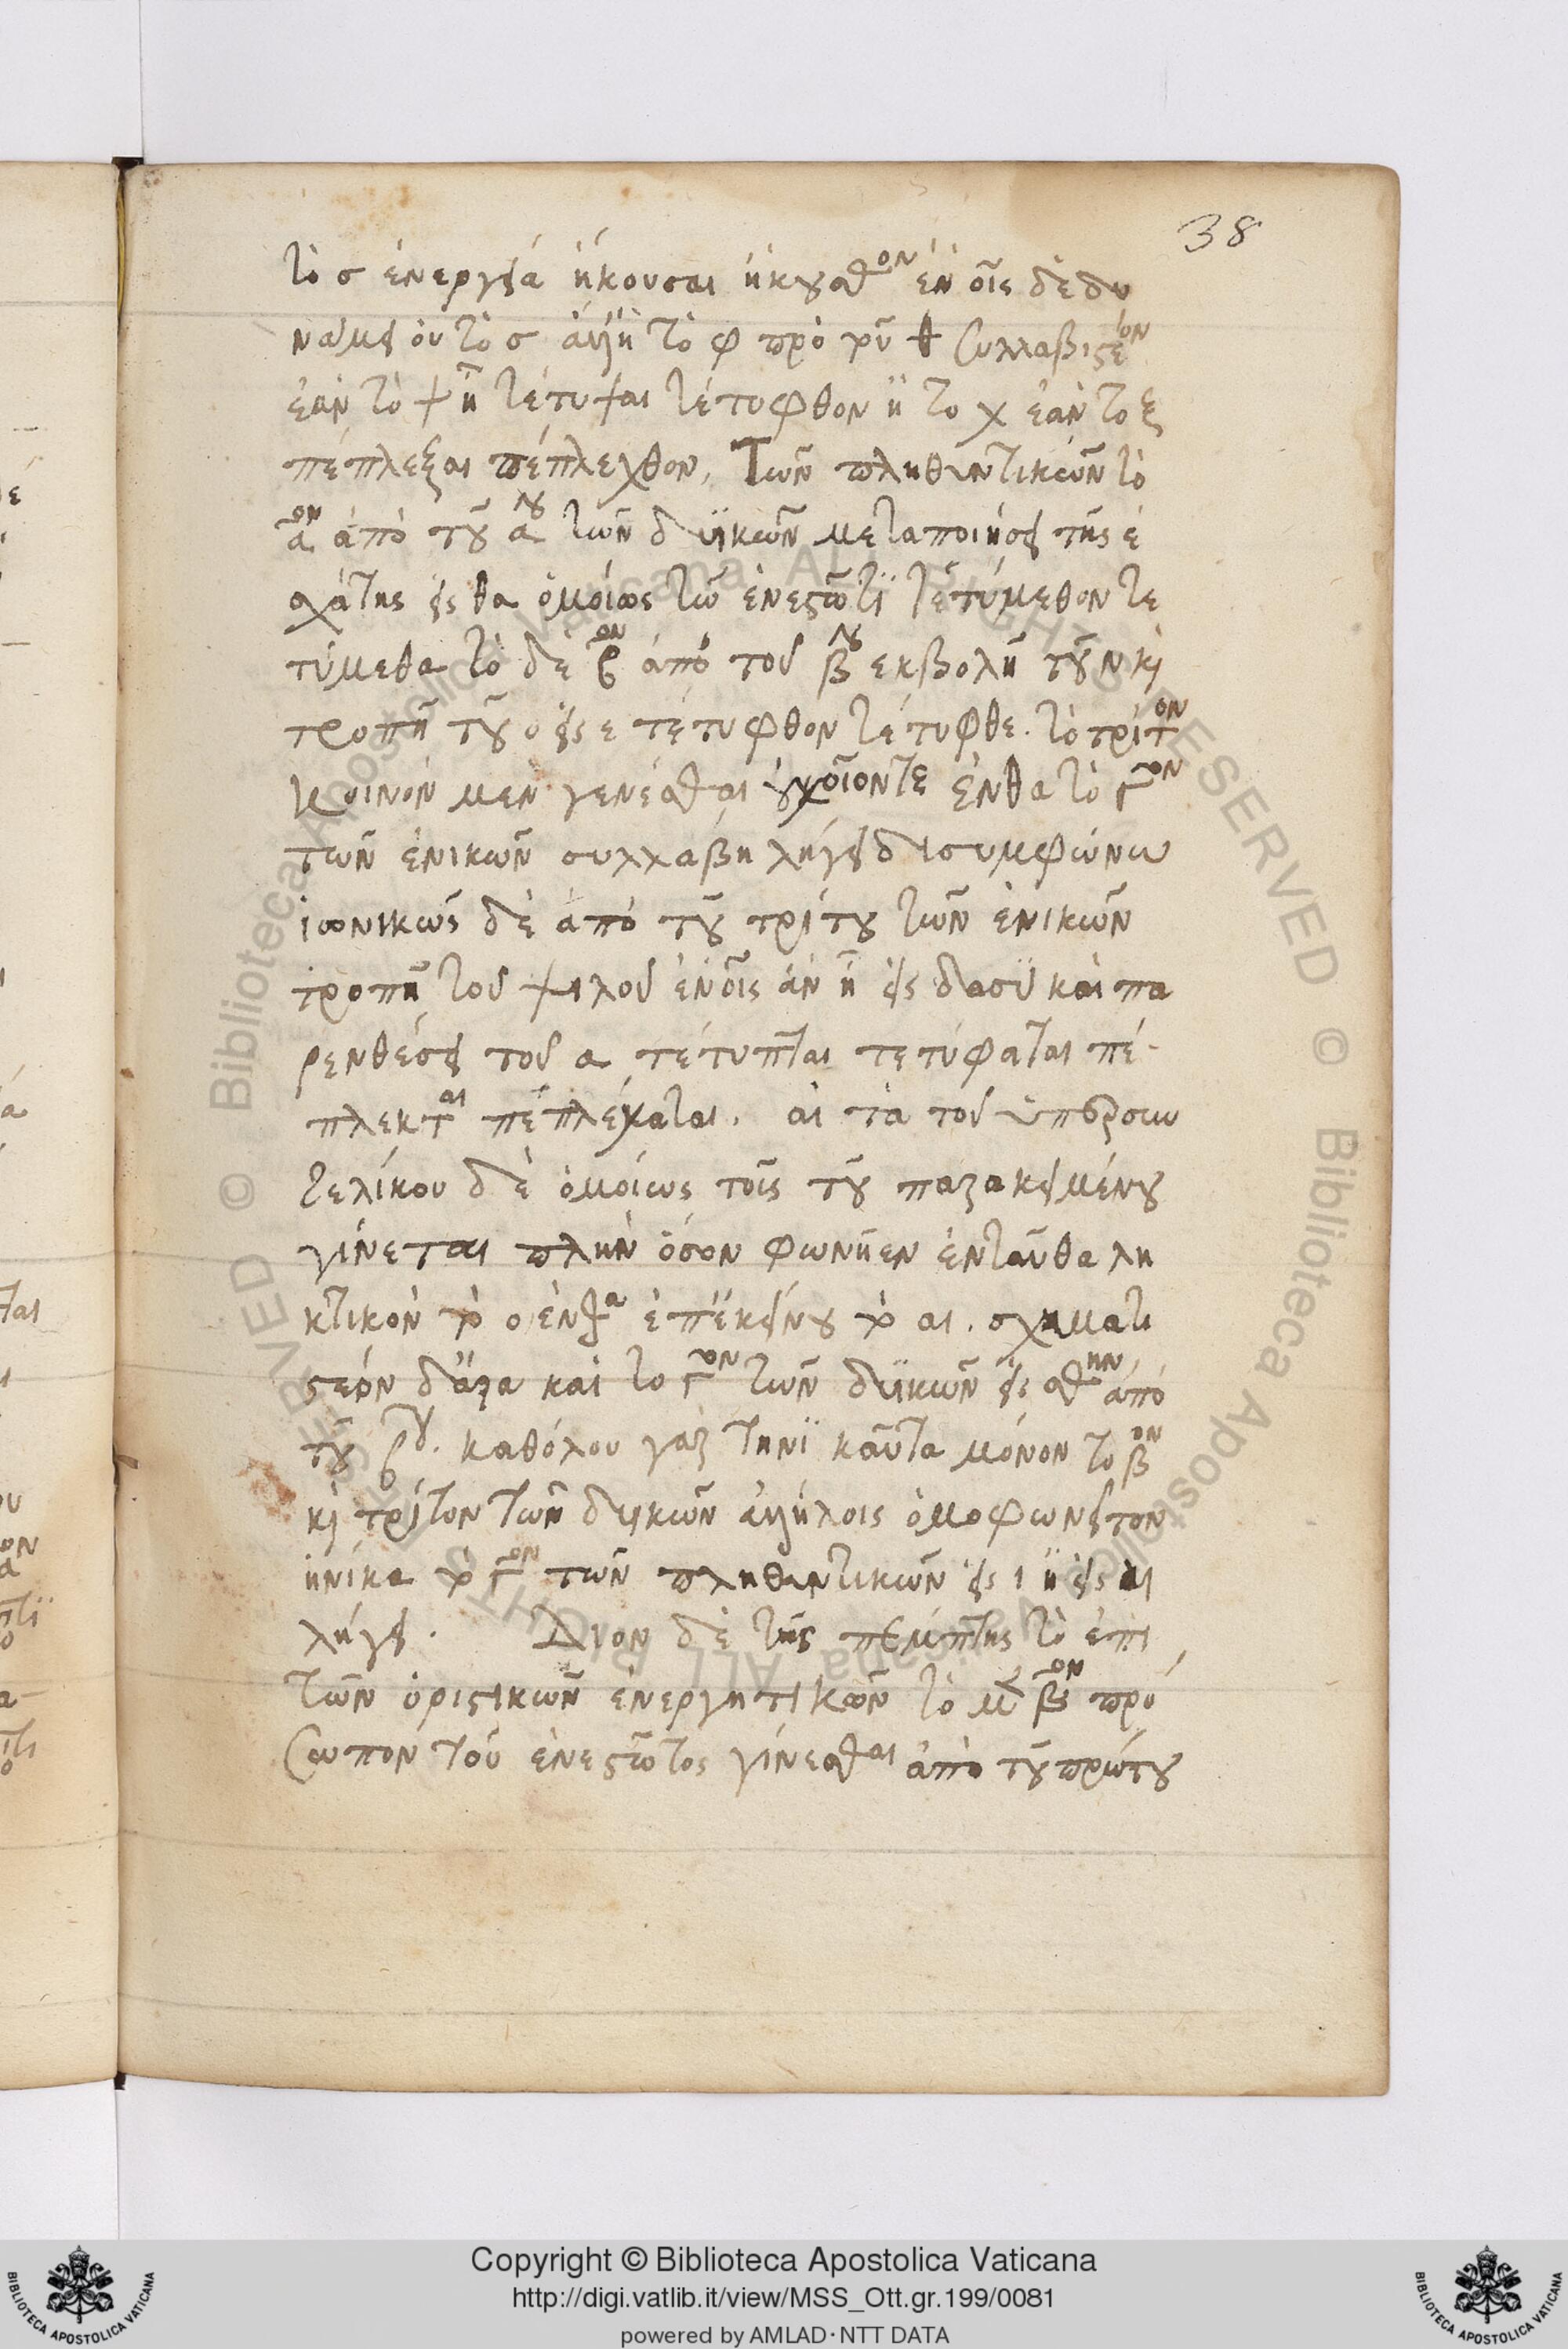 38
τὸ σ ἐνεργεία ἤκουσαι ἤκουσθον ἐν οἷς δὲ δυ
νάμει οὐ τὸ σ ἀλλὴ τὸ φ πρὸ τοῦ θ συλλαβιστέον
ἐὰν τὸ ψ ἦ τέτυψαι τέτυφθον ἢ το χ ἐὰν το ξ
πέπλεξαι πέπλεχθον, Τῶν πληθυντικῶν τὸ
αον ἀπὸ τοῦ αου τῶν δυϊκῶν μεταποιήσει τῆς ἐ
σχάτης εἰς θα ὁμοίως τῶ ἐνεστῶτϊ τετύμεθον τε
τύμεθα τὸ δε βον ἀπὸ τοῦ βου εκβολῆ τοῦ ν κὶ
τροπῆ τοῦ ο εἰς ε τέτυφθον τέτυφθε. τὸ τρίτον
κοινὸν μεν γενέσθαι οὐχοῖοντε ἔνθα τὸ γον
τῶν ἑνικῶν συλλαβη λήγει δισυμφώνω
ἰωνικῶς δὲ ἀπὸ τοῦ τρίτου τῶν ἑνικῶν
τροπῆ τοῦ ψιλοῦ ἐνοῖς ἀν ἦ εἰς δασὺ καὶ πα
ρενθέσει τοῦ α τέτυπται τετύφαται πέ-
πλεκται πεπλέχαται. αι τὰ τοῦ ὑπερσυν
τελίκου δὲ ὁμοίως τοῖς τοῦ παρακειμένου
γίνεται πλὴν ὅσον φωνῆεν ἐνταῦθα λη
κτικὸν τὸ ο ἐπεκείνου τὸ αι. σχηματι
στέον δἄρα καὶ το γον τῶν δυϊκῶν εἰς σθην ἀπὸ
τοῦ βου. καθόλου γαρ τηνϊ καῦτα μόνον το βον
κὶ τρίτον τῶν δυϊκῶν ἀλλήλοις ὁμοφωνεῖτον
ἡνίκα τὸ γον τῶν πληθυντικῶν εἰς ι ἢ εἰς αι
λήγει. Διον δὲ τῆς πεμπτης τὸ ἐπι
τῶν ὁριστικῶν ἐνεργητικῶν τὸ μὲν βον πρό
σωπον τοῦ ἐνεστῶτος γίνεσθαι ἀπὸ τοῦ πρώτου
Copyright © Biblioteca Apostolica Vaticana
http://digi.vatlib.it/view/MSS_Ott.gr.199/0081
powered by AMLAD·NTT DATA
BIBLIOTECA APOSTOLICA VATICANA
BIBLIOTECA APOSTOLICA VATICANA